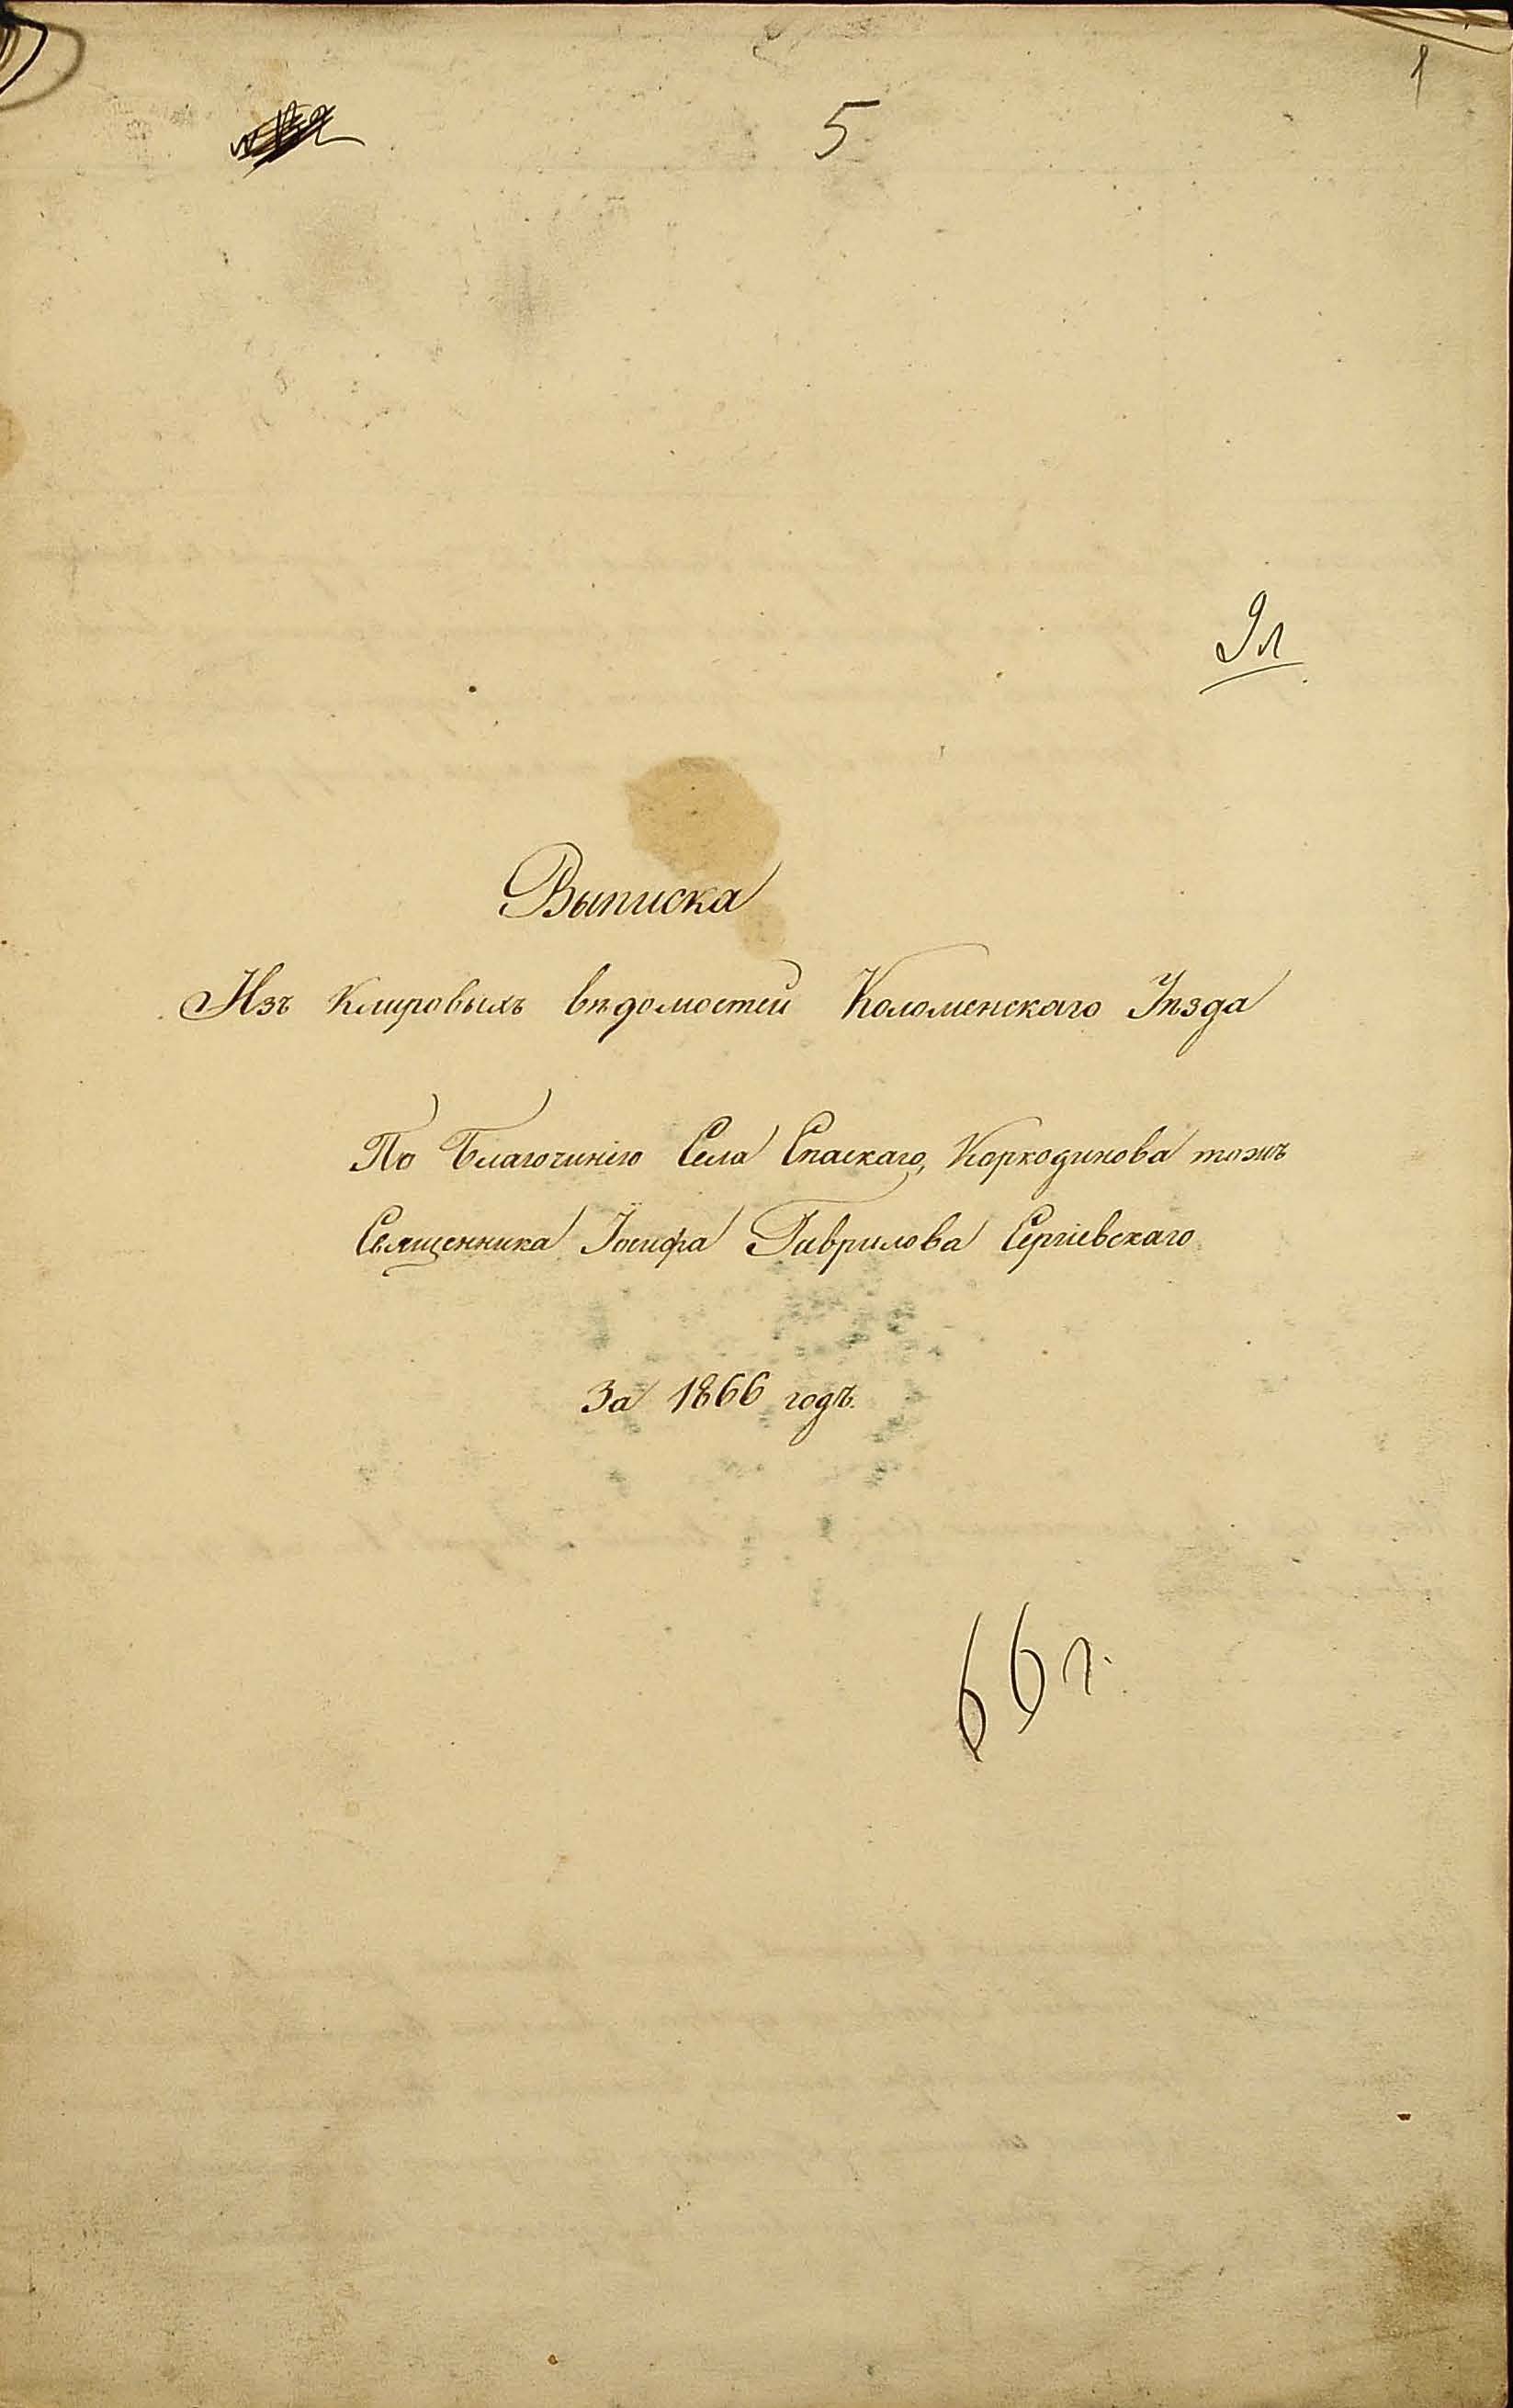 1
5
9л
Выписка
Изъ Клировыхъ вѣдомостей Коломенскаго Уѣзда
По Благочинію Села Спаскаго, Коркодинова тожъ
Священника Іосифа Гаврилова Сергіевскаго
За 1866 годъ.
66 г.